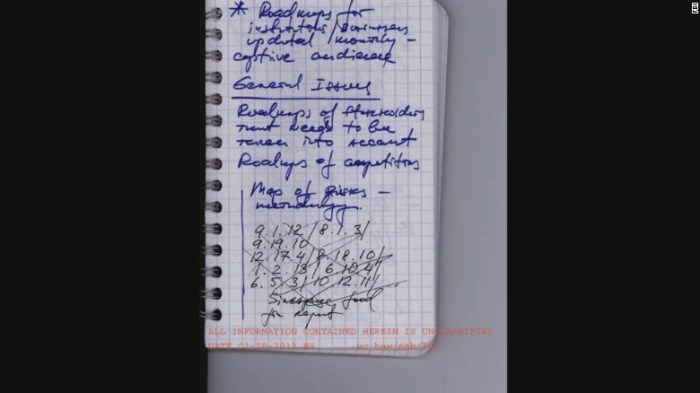 * Roadmaps for
institutions / businesses
updated monthly -
captive audience
General Issues
Roadmaps of stakeholders
that needs to be
taken into account
Roadmaps of competitors
Map of risks -
methodology
9.1.12/8.1.3/
9.19.10
12.17.4/8.18.10/
1.2.13/6.10.4/
6.5.3/10.12.11/
fund
for report
ALL INFORMATION CONTAINED HEREIN IS UNCLASSIFIED
DATE 02-28-2012 BY